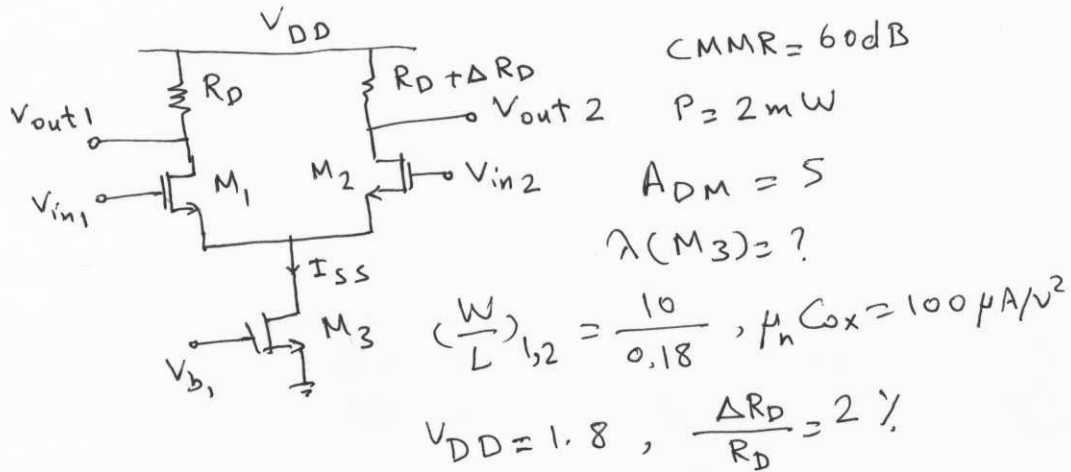 V_DD
R_D
R_D + Δ R_D
V_out 1
V_out 2
V_in1
M_1
M_2
V_in2
I_SS
M_3
V_b1
CMMR = 60dB
P = 2 mW
A_DM = 5
λ(M_3) = ?
(W/L)_1,2 = 10/0.18 , μ_n Cox = 100 μA/V²
V_DD = 1.8 , ΔR_D/R_D = 2 %